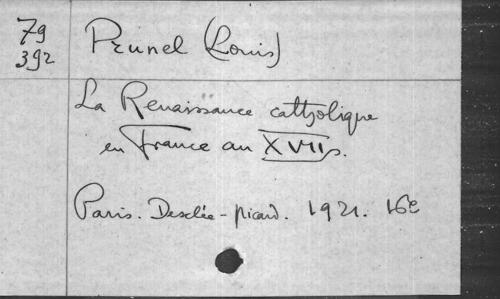 79
392
Prunel (Louis)
La Renaissance catholique
en France au XVII s.
Paris. Desclée-picard. 1921. 16e